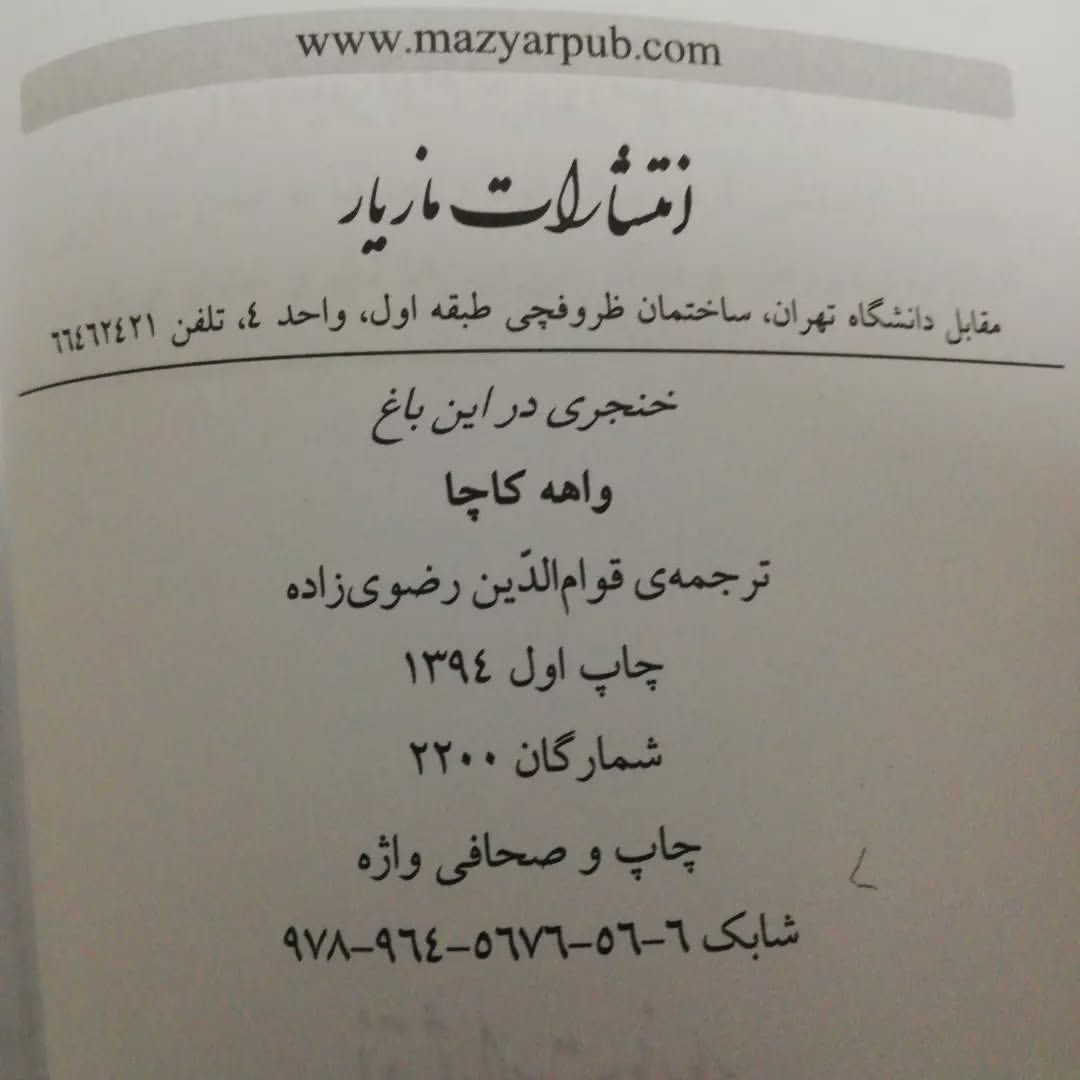 www.mazyarpub.com
انتشارات مازیار
مقابل دانشگاه تهران، ساختمان ظروفچی طبقه اول، واحد ٤، تلفن ٦٦٤٦٢٤٢١
خنجری در این باغ
واهه کاچا
ترجمه‌ی قوام‌الدّین رضوی‌زاده
چاپ اول ١٣٩٤
شمارگان ٢٢٠٠
چاپ و صحافی واژه
شابک ٦-٥٦-٥٦٧٦-٩٦٤-٩٧٨